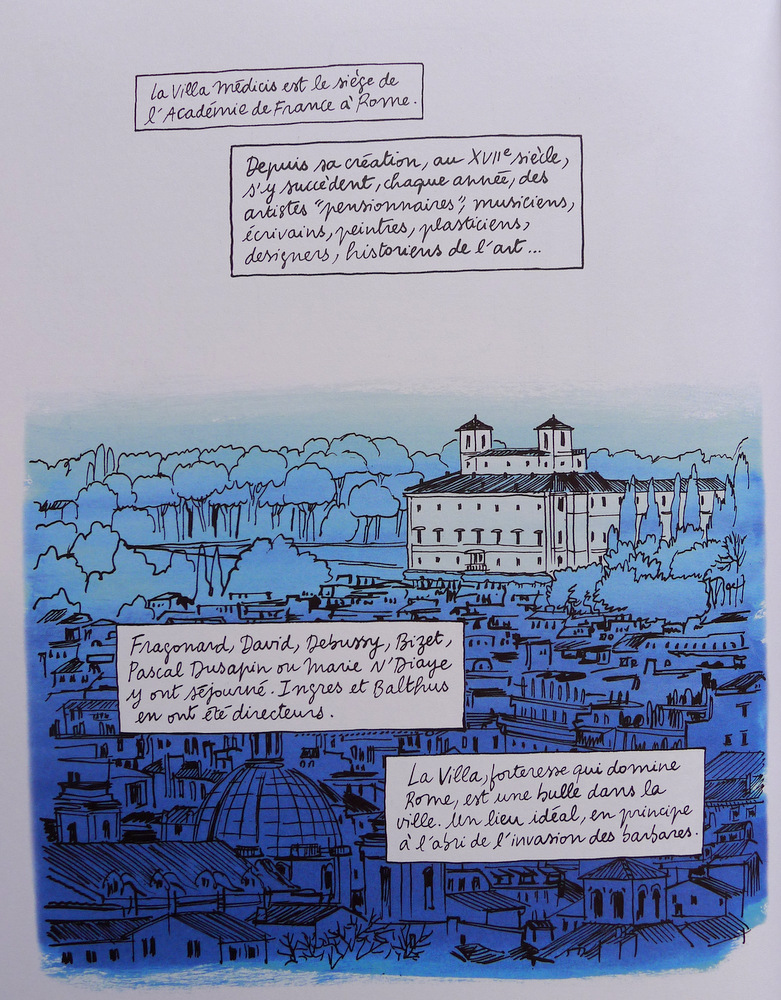 La Villa Médicis est le siège de
l'Académie de France à Rome.
Depuis sa création, au XVIIe siècle,
s'y succèdent, chaque année, des
artistes "pensionnaires", musiciens,
écrivains, peintres, plasticiens,
designers, historiens de l'art...
Fragonard, David, Debussy, Bizet,
Pascal Dusapin ou Marie N'Diaye
y ont séjourné. Ingres et Balthus
en ont été directeurs.
La Villa, forteresse qui domine
Rome, est une bulle dans la
ville. Un lieu idéal, en principe
à l'abri de l'invasion des barbares.